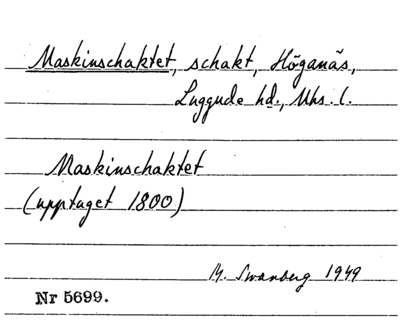 Maskinschaktet, schakt, Höganäs,
Luggude hd., Mhs. l.
Maskinschaktet
(upptaget 1800)
M. Swanberg 1949
Nr 5699.